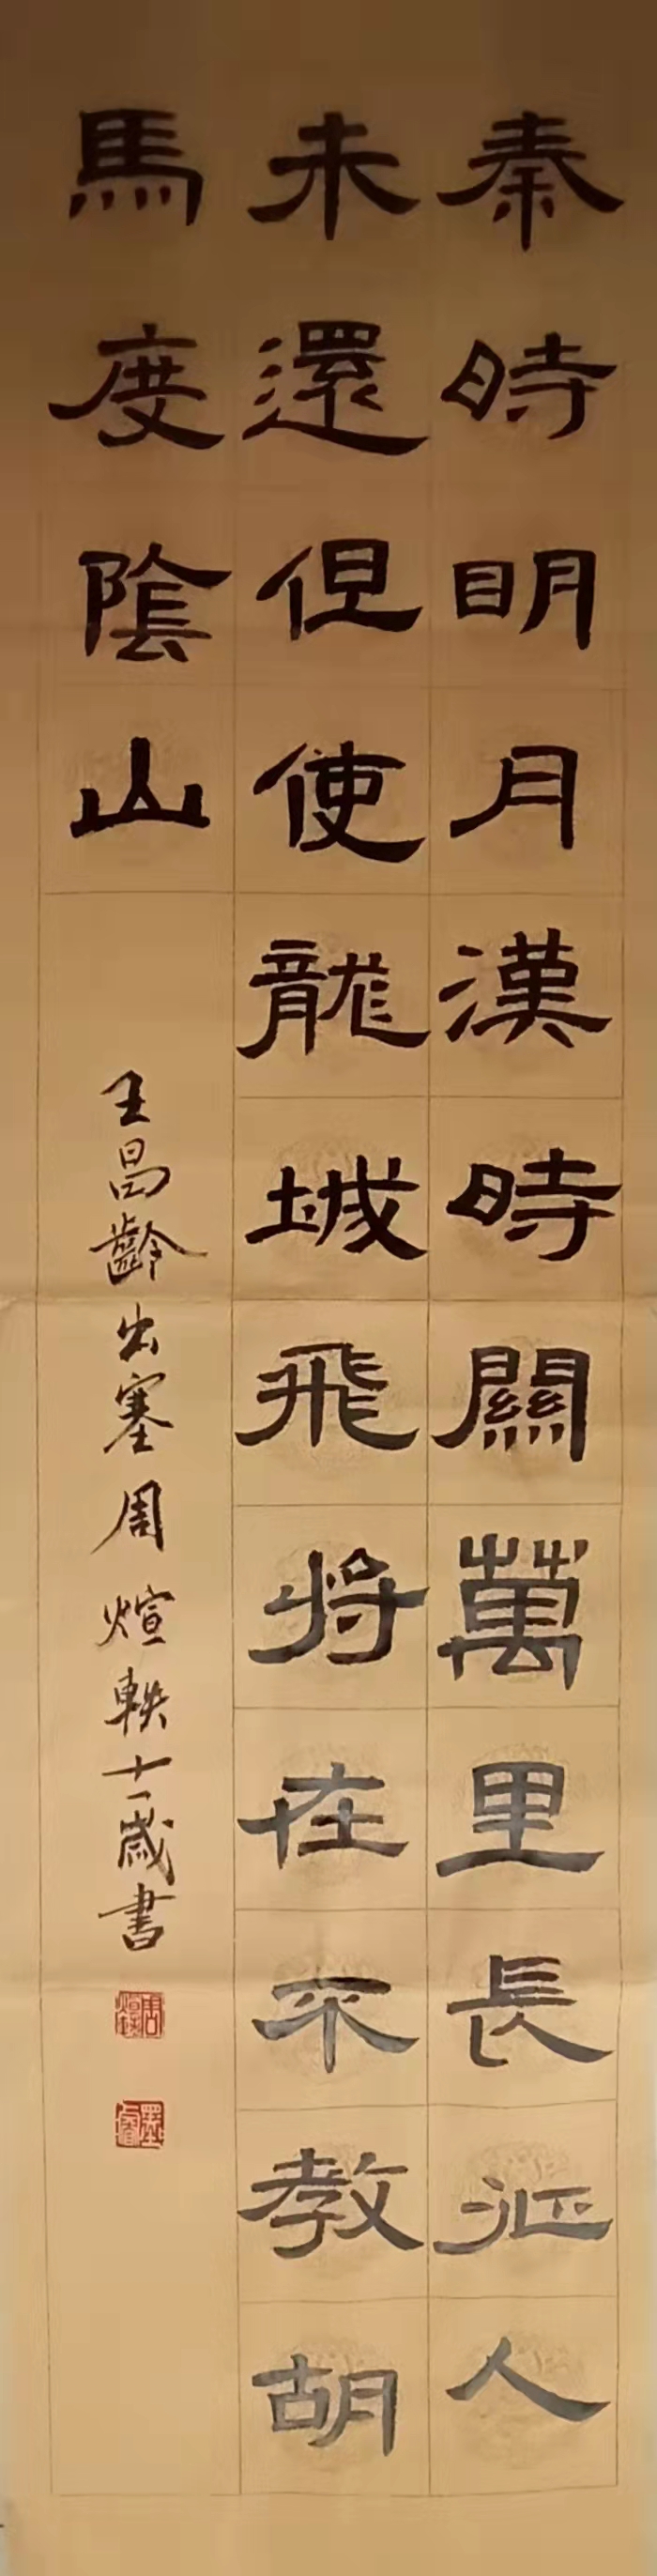 秦時明月漢時關萬里長征人
未還但使龍城飛將在不教胡
馬度陰山
王昌齡出塞周煊軼十一歲書
周煊軼